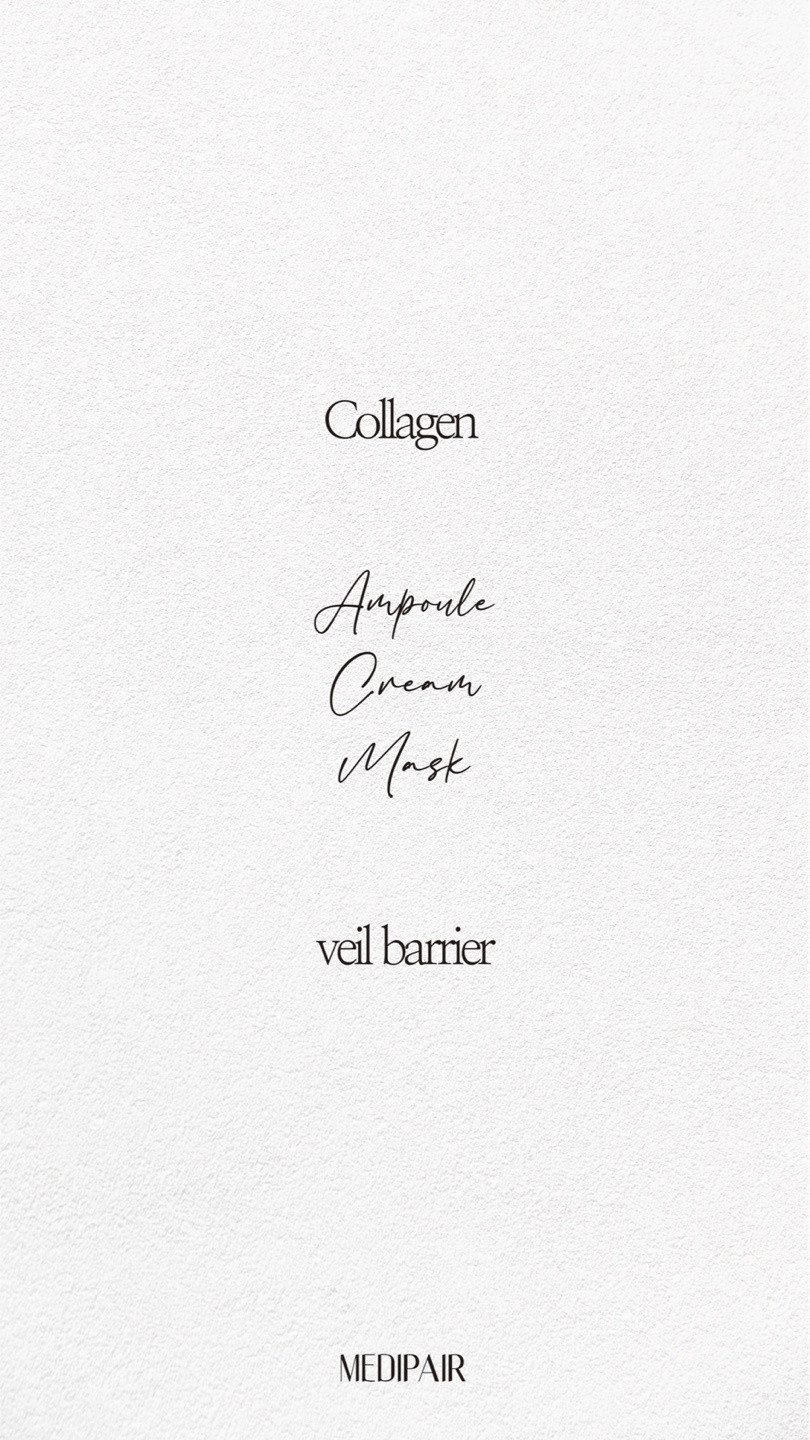 Collagen
Ampoule
Cream
Mask
veil barrier
MEDIPAIR